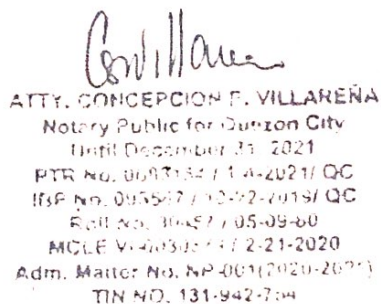 ATTY. CONCEPCION P. VILLAREÑA
Notary Public for Quezon City
Until December 31, 2021
PTR No. 1-4-2021/ QC
IBP No. QC
Roll No. 30457 / 05-09-80
MCLE 2-21-2020
Adm. Matter No. NP-001(2020-2021)
TIN NO. 131-942-754